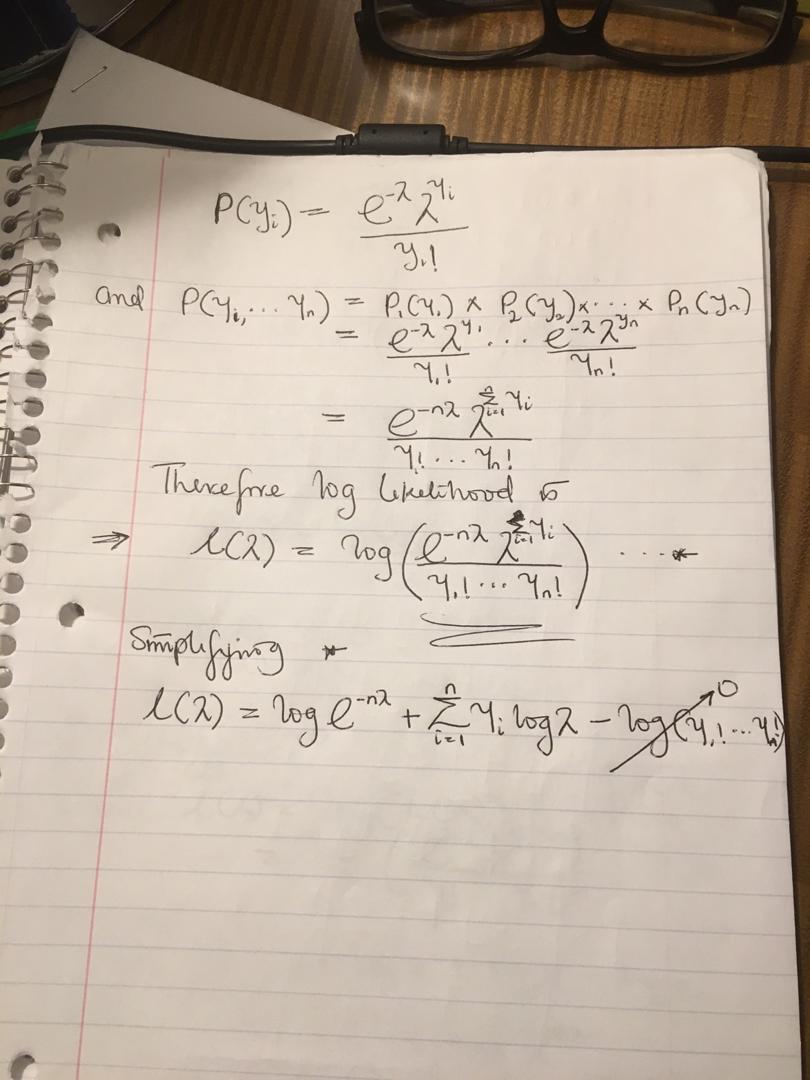 P(yᵢ) = e^-λ λ^yᵢ / yᵢ!
and P(yᵢ, ... yₙ) = P₁(y₁) × P₂(y₂) × ... × Pₙ(yₙ)
= e^-λ λ^y₁ / y₁! ... e^-λ λ^yₙ / yₙ!
= e^-nλ λ^∑ᵢ₌₁ⁿ yᵢ / y₁! ... yₙ!
Therefore log likelihood is
⇒ l(λ) = log(e^-nλ λ^∑ᵢ₌₁ⁿ yᵢ / y₁! ... yₙ!) ....*
Simplifying *
l(λ) = log e^-nλ + ∑ᵢ₌₁ⁿ yᵢ log λ - log(y₁! ... yₙ!) 0